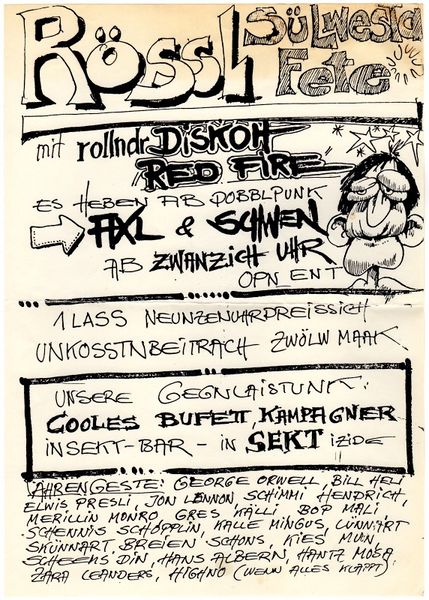 RÖSSL SÜLWESTA
Fete
mit rollndr DISKOH
RED FIRE
ES HEBEN AB DOBBLPUNK
AXL & SCHWEN
AB ZWANZICH UHR
OPN ENT
1LASS NEUNZENUHRDREISSICH
UNKOSSTNBEITRACH ZWÖLW MAAK.
UNSERE GEGNLAISTUNK:
COOLES BUFETT, KAMPAGNER
INSEKT-BAR - IN SEKT IZIDE
ÄHRENGESTE: GEORGE ORWELL, BILL HELI
ELWIS PRESLI, JON LENNON SCHIMMI HENDRICH,
MERILLIN MONRO, GRES KÄLLI BOP MALI,
SCHENNIS SCHOPPLIN, KALLE MINGUS, LÜNNART
SKÜNNART, BREIEN SCHONS, KIES MUN,
SCHEEMS DIN, HANS ALBERN, HANTZ MOSA
ZARA LEANDERS, HIGHNO (WENN ALLES KLAPPT).